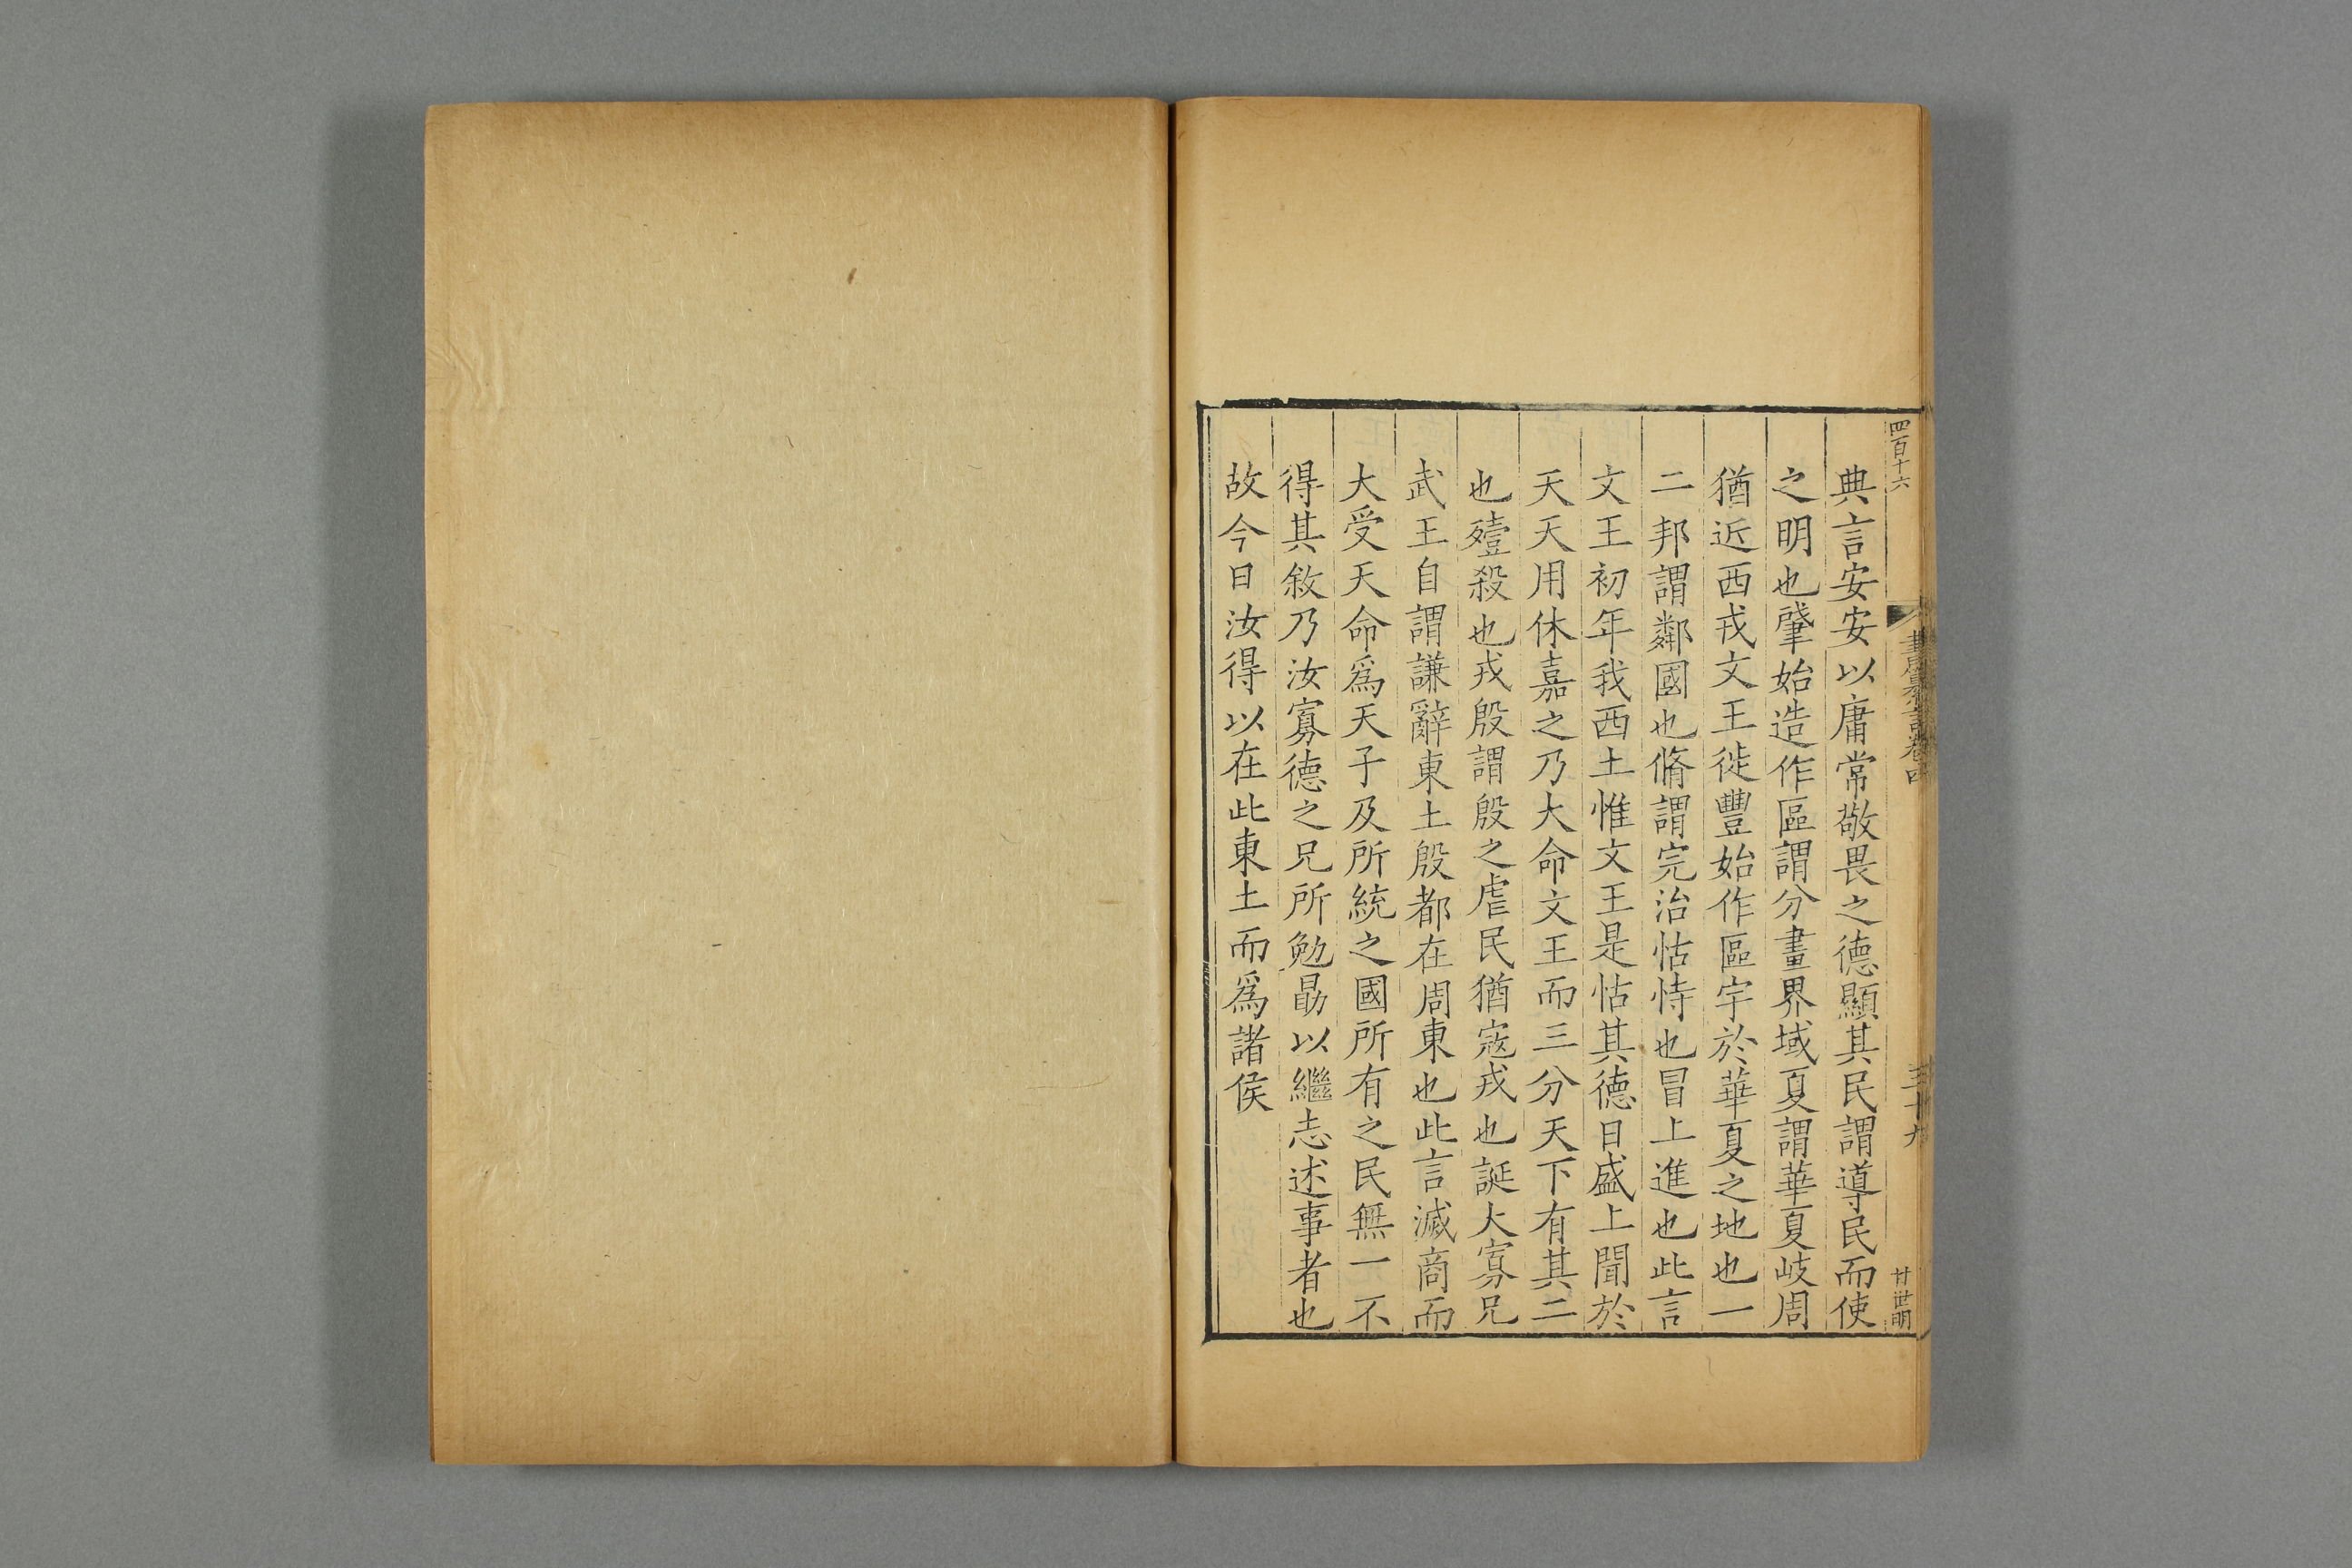 四百十六
書纂言卷四
三十九
廿世明
典言安安以庸常敬畏之德顯其民謂導民而使
之明也肇始造作區謂分畫界域夏謂華夏岐周
猶近西戎文王徙豐始作區宇於華夏之地也一
二邦謂鄰國也脩謂完治怙恃也冒上進也此言
文王初年我西土惟文王是怙其德日盛上聞於
天天用休嘉之乃大命文王而三分天下有其二
也殪殺也戎殷謂殷之虐民猶寇戎也誕大寡兄
武王自謂謙辭東土殷都在周東也此言滅商而
大受天命爲天子及所統之國所有之民無一不
得其敘乃汝寡德之兄所勉勗以繼志述事者也
故今日汝得以在此東土而爲諸侯